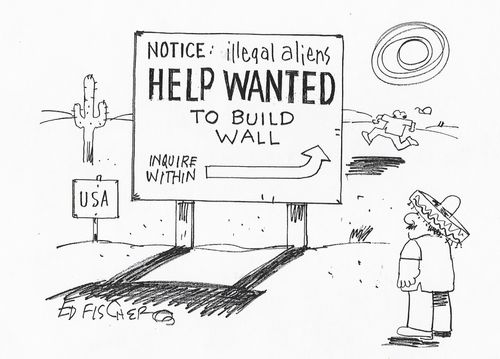 NOTICE: illegal aliens
HELP WANTED
TO BUILD
WALL
INQUIRE
WITHIN
USA
ED FISCHER